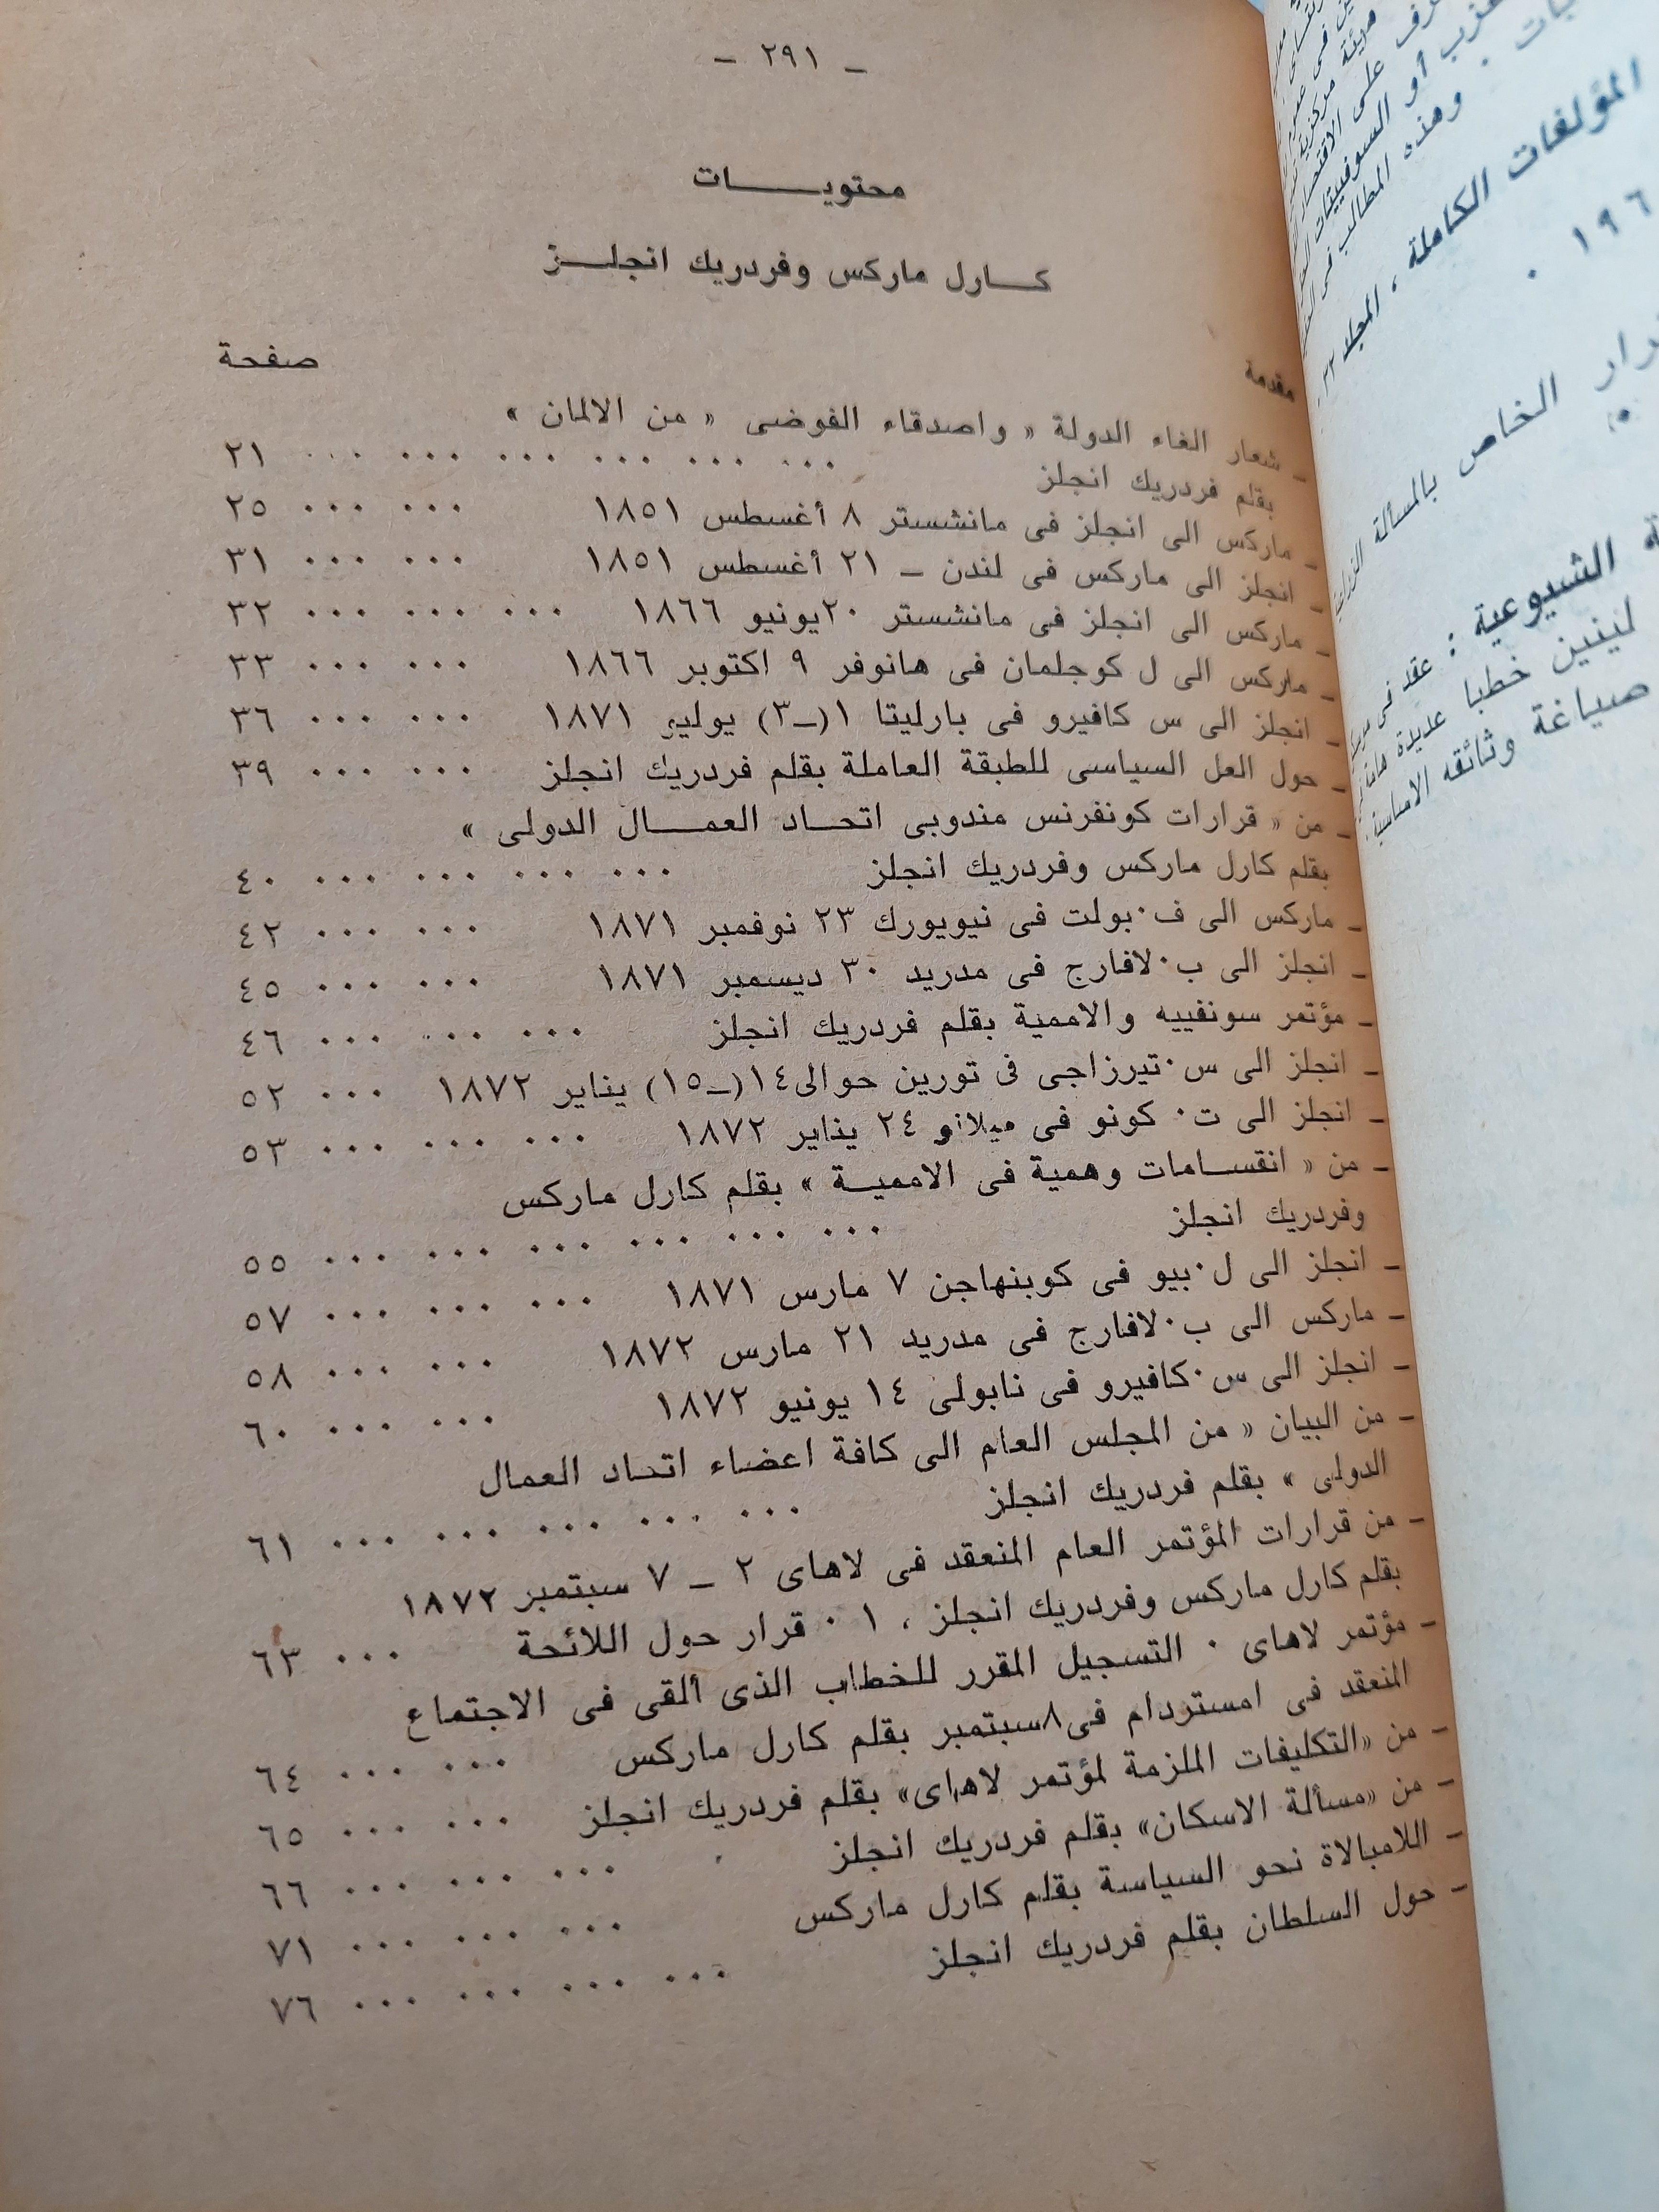 ـ ٢٩١ ـ
محتويـــــــات
كــارل ماركس وفردريك انجلــز
صفحة
مقدمة
ـ شعار الغاء الدولة « واصدقاء الفوضى « من الالمان »
بقلم فردريك انجلز ... ... ... ... ... ... ٢١
ـ ماركس الى انجلز فى مانشستر ٨ أغسطس ١٨٥١ ... ... ٢٥
ـ انجلز الى ماركس فى لندن ـ ٢١ أغسطس ١٨٥١ ... ... ٣١
ـ ماركس الى انجلز فى مانشستر ٢٠يونيو ١٨٦٦ ... ... ... ٣٢
ـ ماركس الى ل كوجلمان فى هانوفر ٩ اكتوبر ١٨٦٦ ... ... ٣٣
ـ انجلز الى س كافيرو فى بارليتا ١(ـ٣) يوليو ١٨٧١ ... ... ٣٦
ـ حول العل السياسى للطبقة العاملة بقلم فردريك انجلز ... ... ٣٩
ـ من « قرارات كونفرنس مندوبى اتحــاد العمــــال الدولى »
بقلم كارل ماركس وفردريك انجلز ... ... ... ... ٤٠
ـ ماركس الى ف٠بولت فى نيويورك ٢٣ نوفمبر ١٨٧١ ... ... ٤٢
ـ انجلز الى ب٠لافارج فى مدريد ٣٠ ديسمبر ١٨٧١ ... ... ٤٥
ـ مؤتمر سونفييه والاممية بقلم فردريك انجلز ... ... ... ٤٦
ـ انجلز الى س٠تيرزاجى فى تورين حوالى١٤(ـ١٥) يناير ١٨٧٢ ... ٥٢
ـ انجلز الى ت٠ كونو فى ميلانو ٢٤ يناير ١٨٧٢ ... ... ... ٥٣
ـ من « انقســامات وهمية فى الامميــة » بقلم كارل ماركس
وفردريك انجلز ... ... ... ... ... ... ٥٥
ـ انجلز الى ل٠بيو فى كوبنهاجن ٧ مارس ١٨٧١ ... ... ... ٥٧
ـ ماركس الى ب٠لافارج فى مدريد ٢١ مارس ١٨٧٢ ... ... ٥٨
ـ انجلز الى س٠كافيرو فى نابولى ١٤ يونيو ١٨٧٢ ... ... ٦٠
ـ من البيان « من المجلس العام الى كافة اعضاء اتحاد العمال
الدولى » بقلم فردريك انجلز ... ... ... ... ... ٦١
ـ من قرارات المؤتمر العام المنعقد فى لاهاى ٢ ـ ٧ سبتمبر ١٨٧٢
بقلم كارل ماركس وفردريك انجلز ، ١ ٠ قرار حول اللائحة ... ٦٣
ـ مؤتمر لاهاى ٠ التسجيل المقرر للخطاب الذى ألقى فى الاجتماع
المنعقد فى امستردام فى٨سبتمبر بقلم كارل ماركس ... ... ٦٤
ـ من «التكليفات الملزمة لمؤتمر لاهاى» بقلم فردريك انجلز ... ... ٦٥
ـ من «مسألة الاسكان» بقلم فردريك انجلز ... ... ... ٦٦
ـ اللامبالاة نحو السياسة بقلم كارل ماركس ... ... ... ٧١
ـ حول السلطان بقلم فردريك انجلز ... ... ... ... ٧٦
المؤلفات الكاملة ، المجلد ٣٢
الخاص بالمسألة
الشيوعية : عقد فى
لينين خطبا عديدة
صياغة وثائقه الاساسية